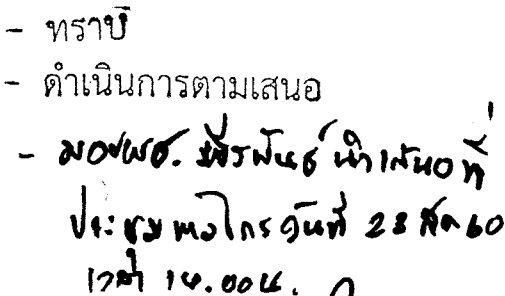 - ทราบ
- ดำเนินการตามเสนอ
- มอบผศ. พีรพันธ์ นำเสนอที่
ประชุม วันที่ 23 สค 60
เวลา 14.00 น.